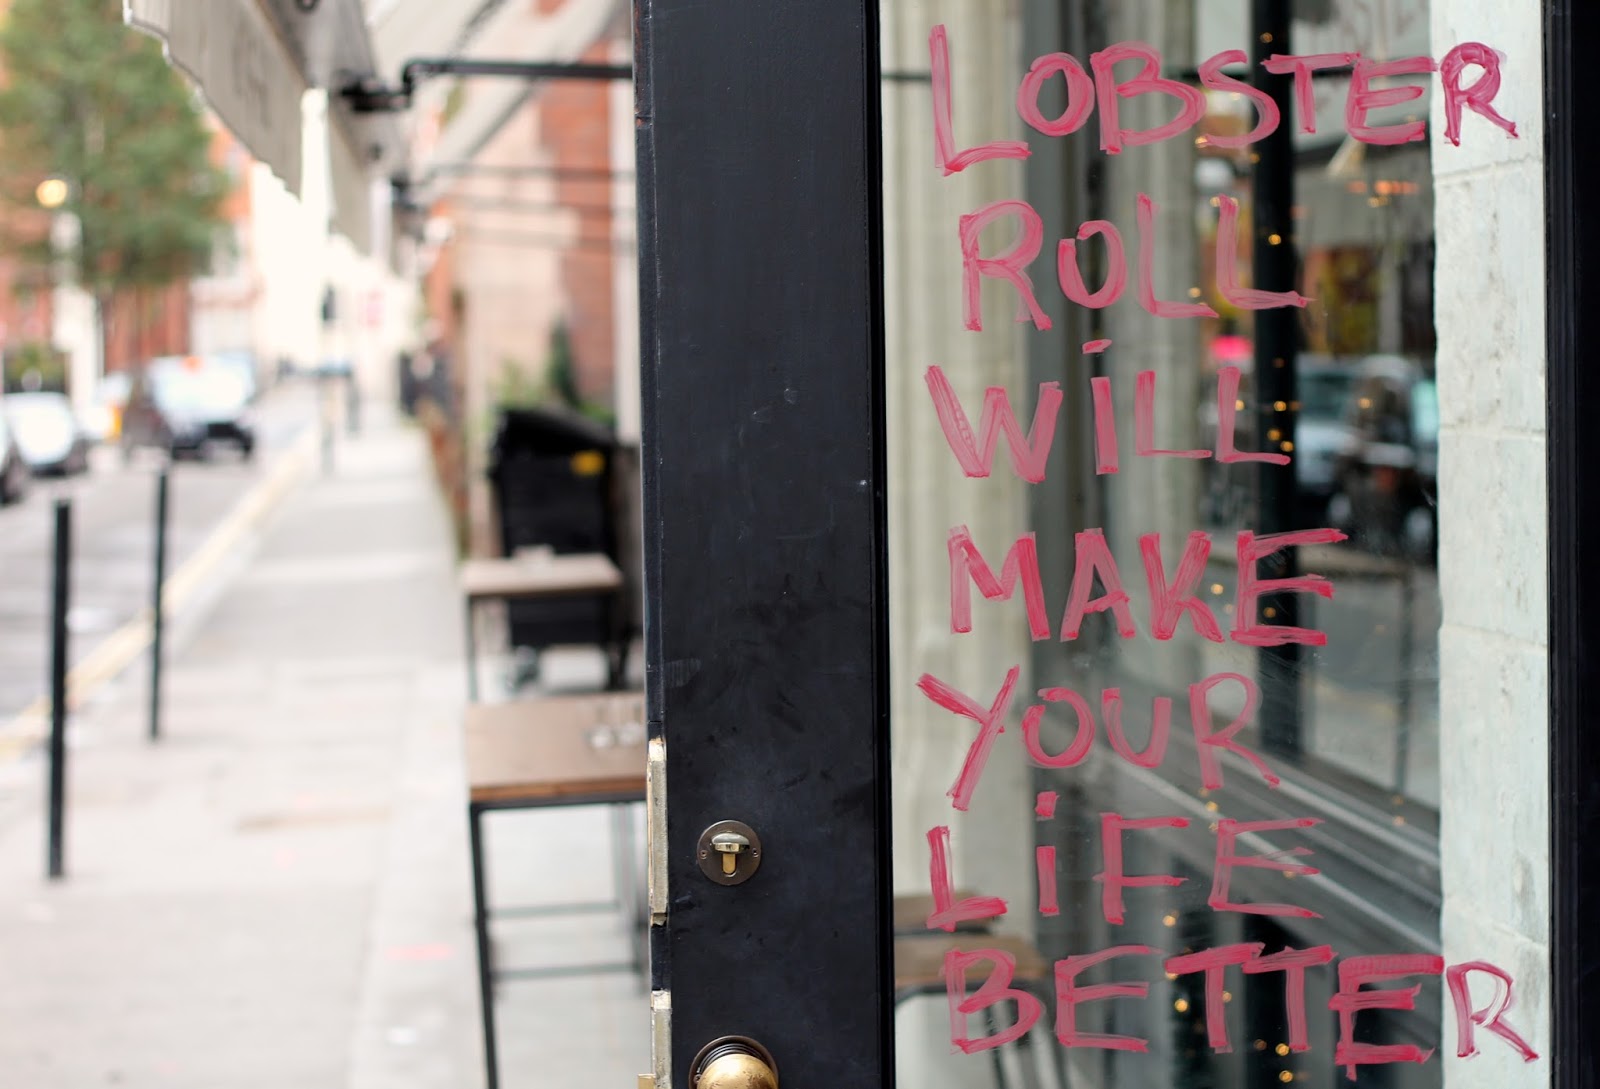 LOBSTER
ROLL
WiLL
MAKE
YOUR
LiFE
BETTER